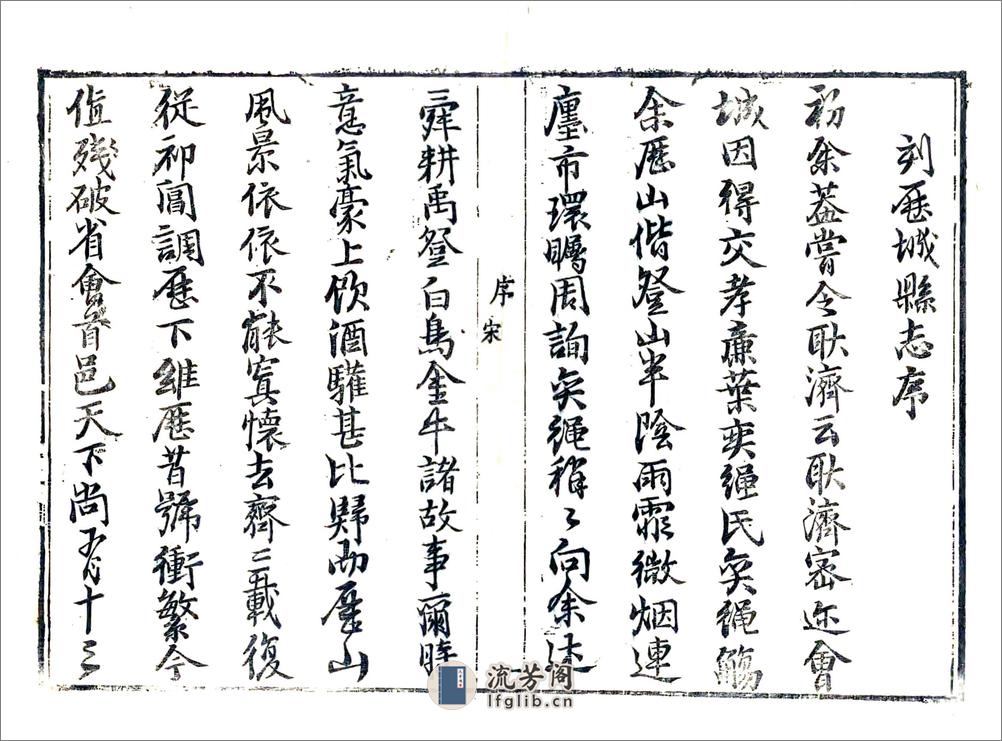 刻歷城縣志序
初余葢嘗令耿濟云耿濟密迩會
城因得交孝廉葉奕繩氏奕繩觴
余歷山偕登山半陰雨霏微烟連
廛市環矚周詢奕繩稍〻向余述
序 宋
舜耕禹登白鳥金牛諸故事爾時
意氣豪上飲酒驩甚比歸而歷山
風景依依不能寘懷去齊三載復
從祁閶調歷下維歷昔號衝繁今
值殘破省會首邑天下尚有十三
流芳阁
lfglib.cn